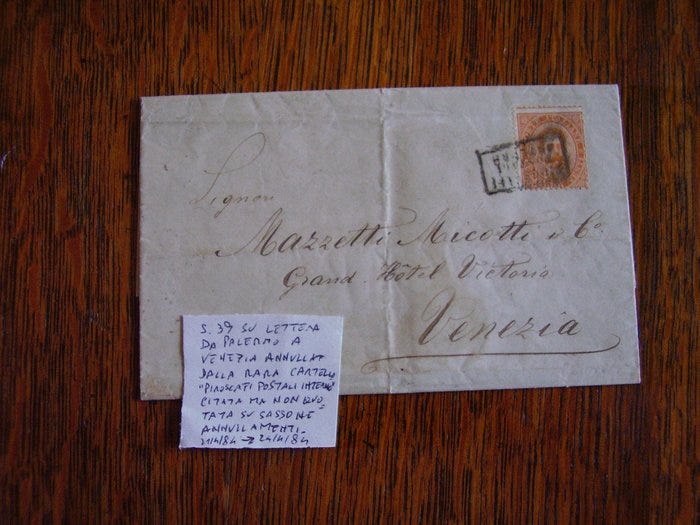 Signori
Mazzetti Micotti & Co.
Grand Hôtel Victoria
Venezia
S. 39 SU LETTERA
DA PALERMO A
VENEZIA ANNULLAT
DALLA RARA CARTELLA
"PIROSCAFI POSTALI INTERNI"
CITATA MA NON QUO=
TATA SU SASSONE
ANNULLAMENTI_
21/4/84 → 24/4/84